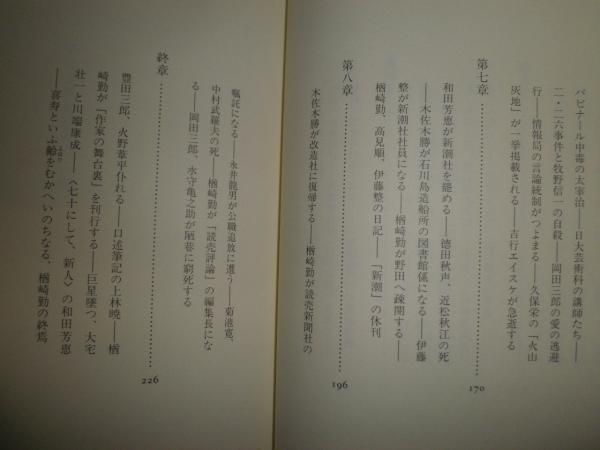 パビナール中毒の太宰治――日大芸術科の講師たち――
二・二六事件と牧野信一の自殺――岡田三郎の愛の逃避
行――情報局の言論統制がつよまる――久保栄の「火山
灰地」が一挙掲載される――吉行エイスケが急逝する
第七章 170
和田芳恵が新潮社を罷める――徳田秋声、近松秋江の死
――木佐木勝が石川島造船所の図書館係になる――伊藤
整が新潮社社員になる――楢崎勤が野田へ疎開する――
楢崎勤、高見順、伊藤整の日記――「新潮」の休刊
第八章 196
木佐木勝が改造社に復帰する――楢崎勤が読売新聞社の
嘱託になる――永井龍男が公職追放に遭う――菊池寛、
中村武羅夫の死――楢崎勤が「読売評論」の編集長にな
る――岡田三郎、水守亀之助が陋巷に窮死する
終章 226
豊田三郎、火野葦平仆れる――口述筆記の上林暁――楢
崎勤が「作家の舞台裏」を刊行する――巨星墜つ、大宅
壮一と川端康成――〈七十にして、新人〉の和田芳恵
――喜寿といふ齢をむかへいのちなる、楢崎勤の終焉